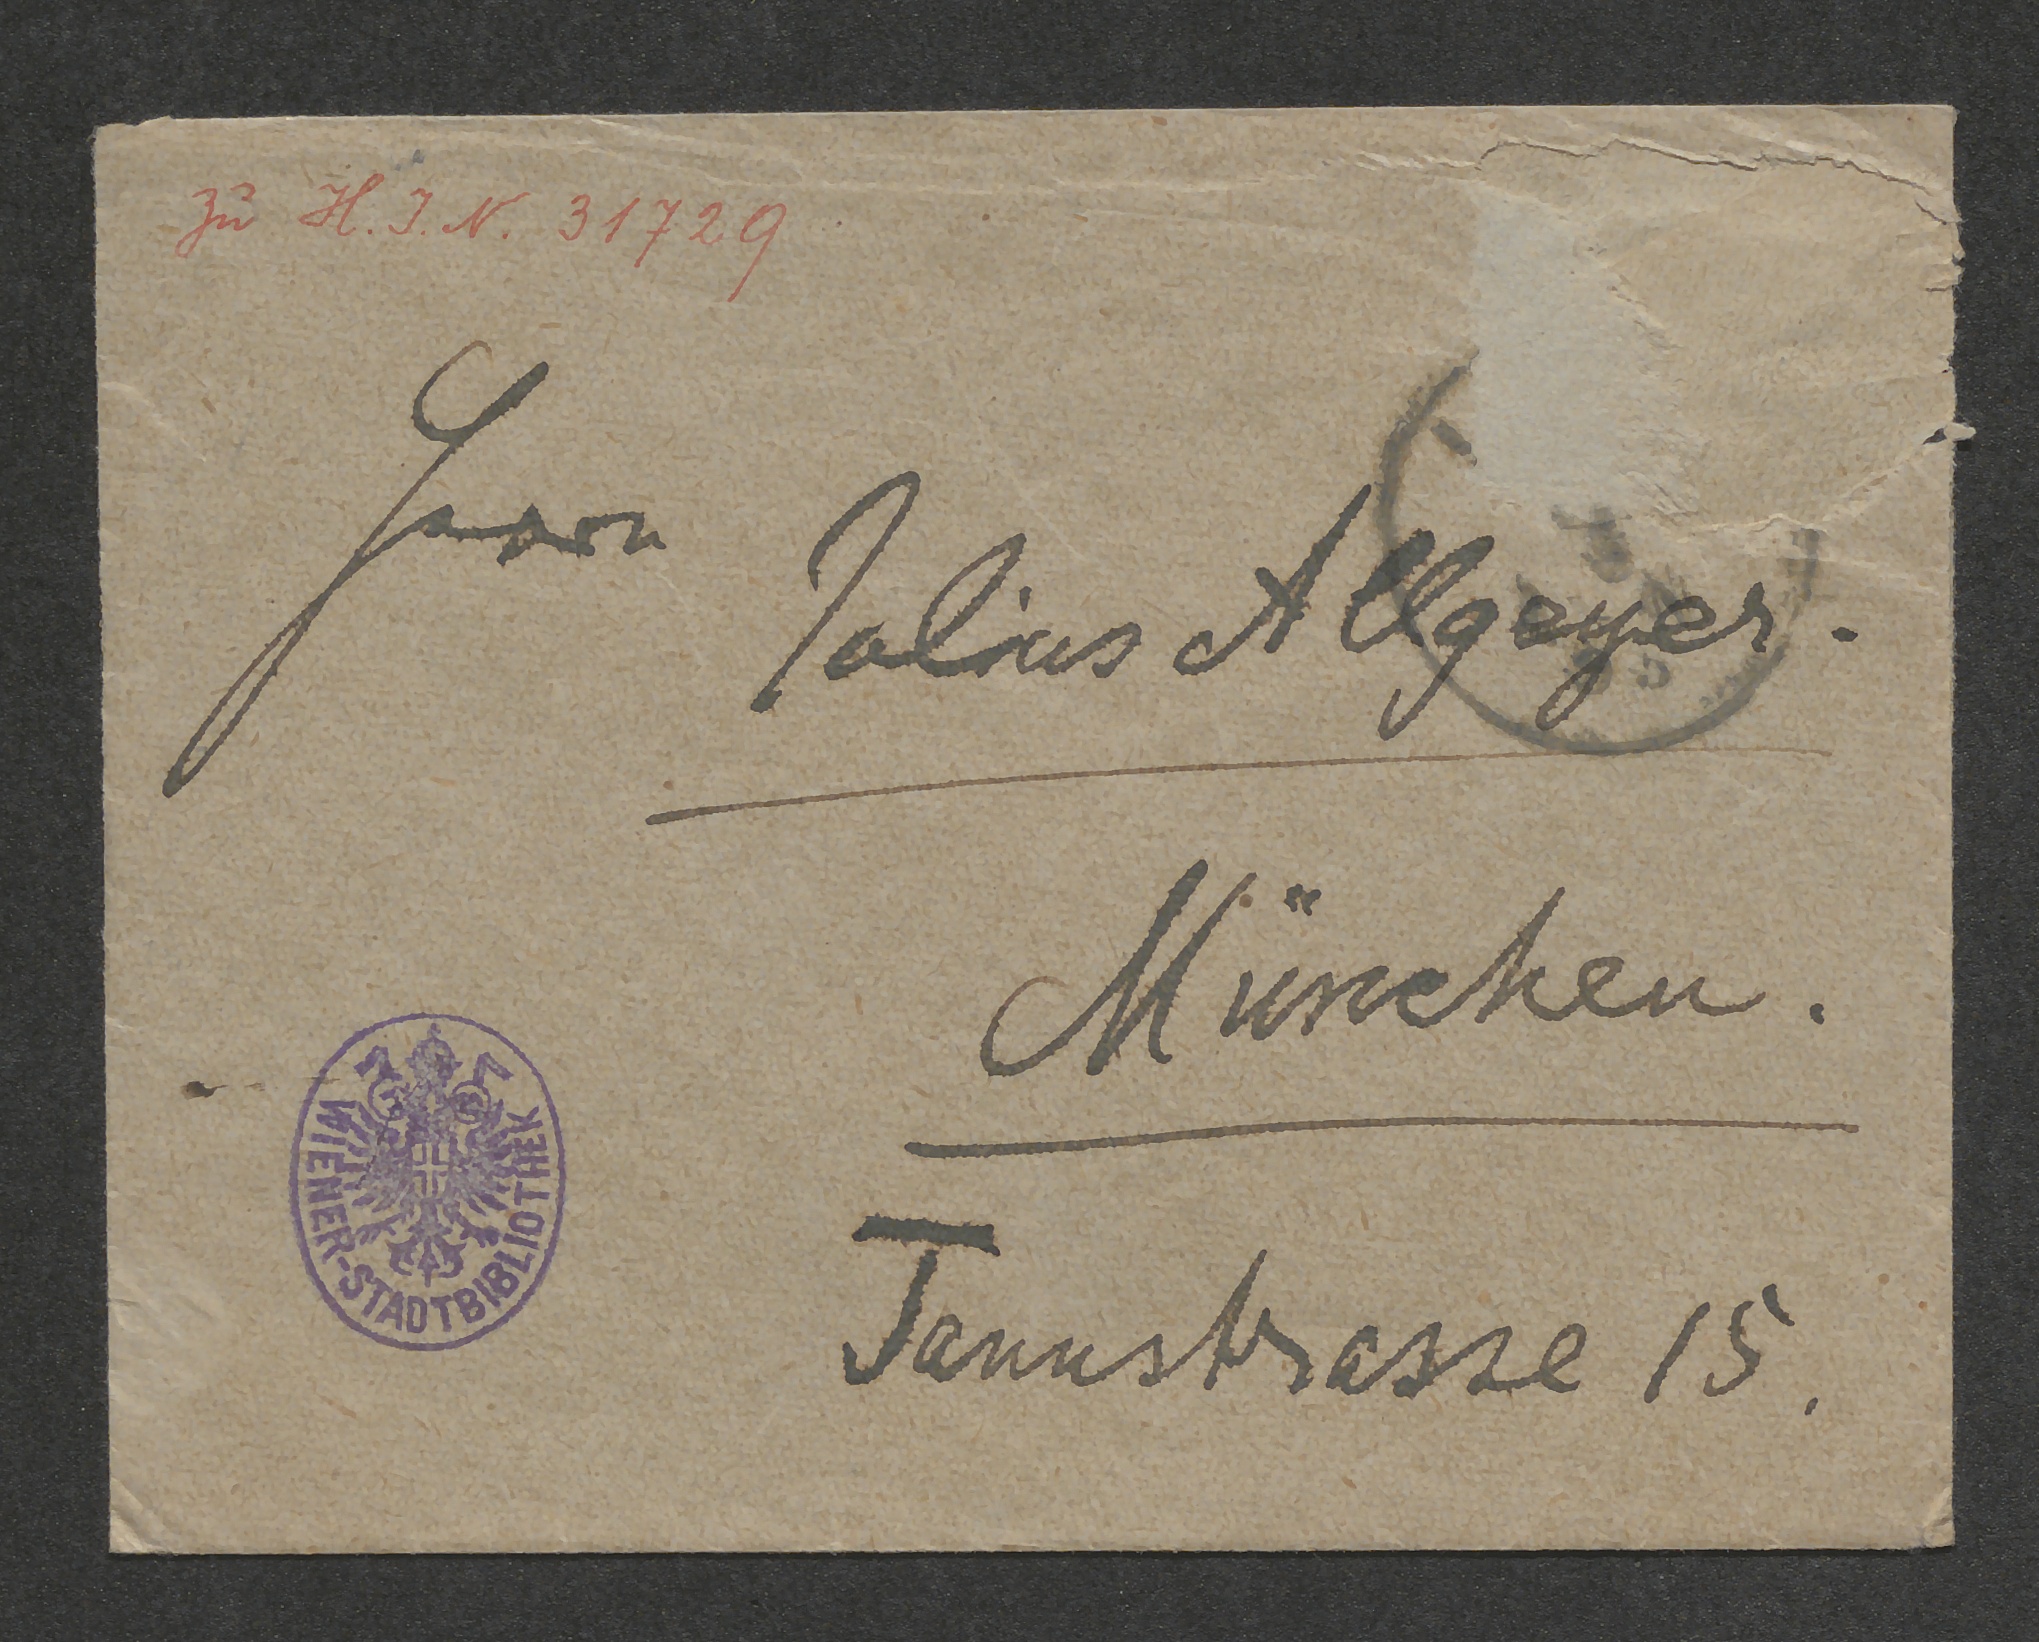 zu H.I.N. 31729
Herrn
Julius Allgeyer.
München.
Tannstrasse 15.
WIENER-STADTBIBLIOTHEK